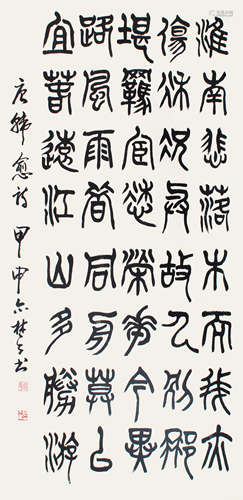 淮南悲落木而我亦
傷秋況與故人別那
堪羈宦愁榮華今異
路風雨昔同舟莫以
宜春遠江山多勝游
唐韓愈詩 甲申 書